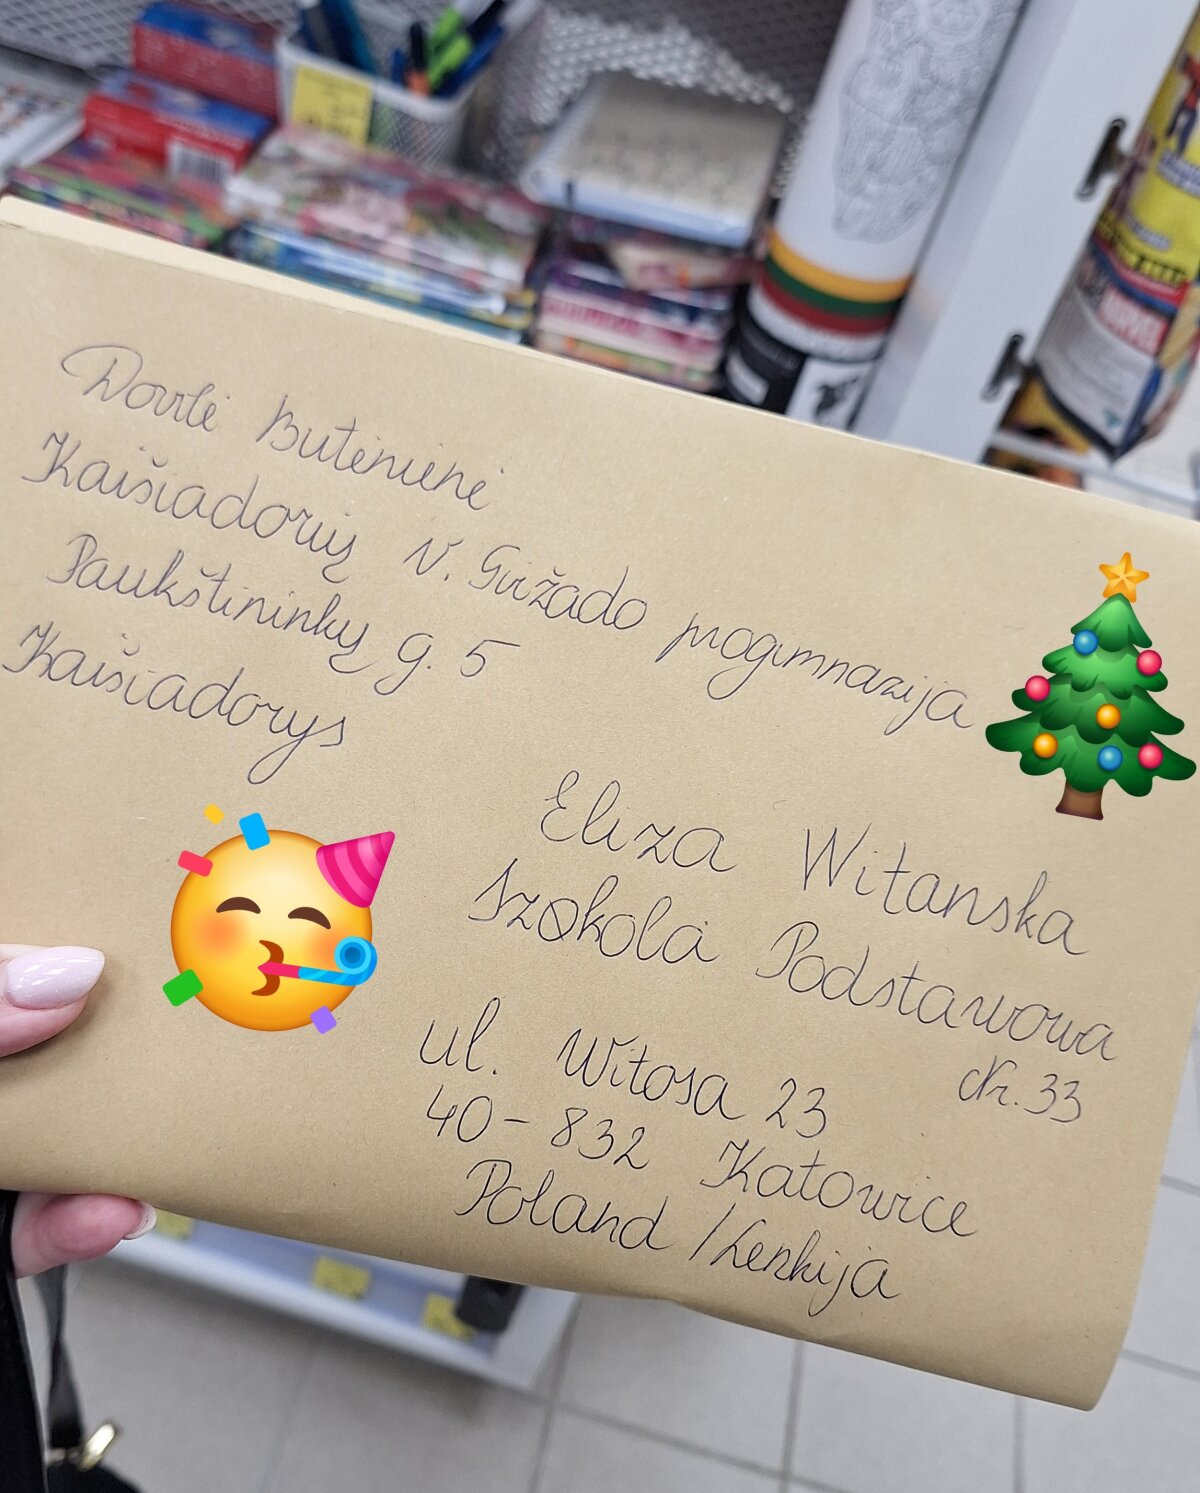 Dovilė Butėnienė
Kaišiadorių V. Giržado progimnazija
Paukštininkų g. 5
Kaišiadorys
Eliza Witanska
Szokola Podstawowa
Nr. 33
ul. Witosa 23
40-832 Katowice
Poland / Lenkija
MARVEL